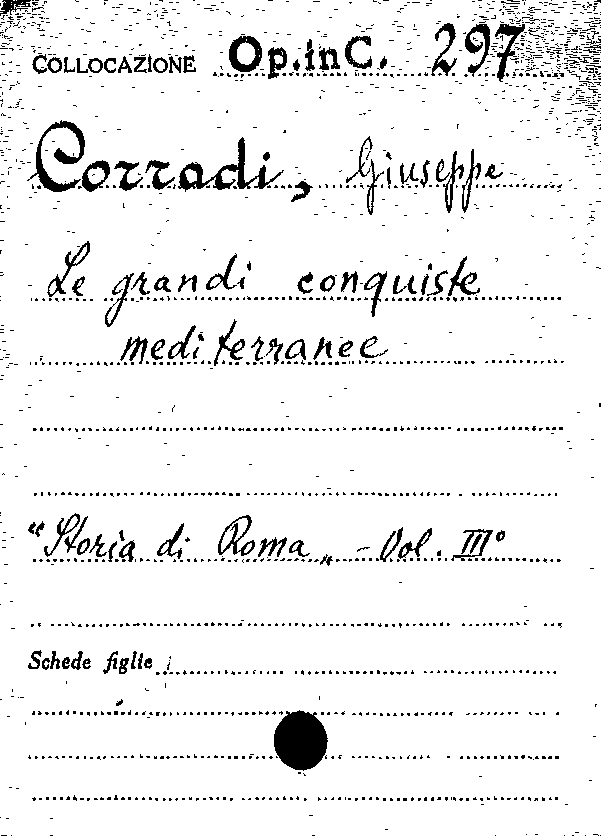 COLLOCAZIONE Op.inC. 297
Corradi, Giuseppe
Le grandi conquiste
mediterranee
"Storia di Roma„ - Vol. III°
Schede figlie